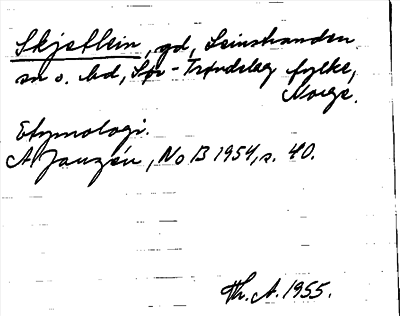 Skjetlein, gd, Leinstranden
sn o. hd, Sør-Trøndelag fylke,
Norge.
Etymologi.
A Janzén, No B 1954, s. 40.
Th. A. 1955.